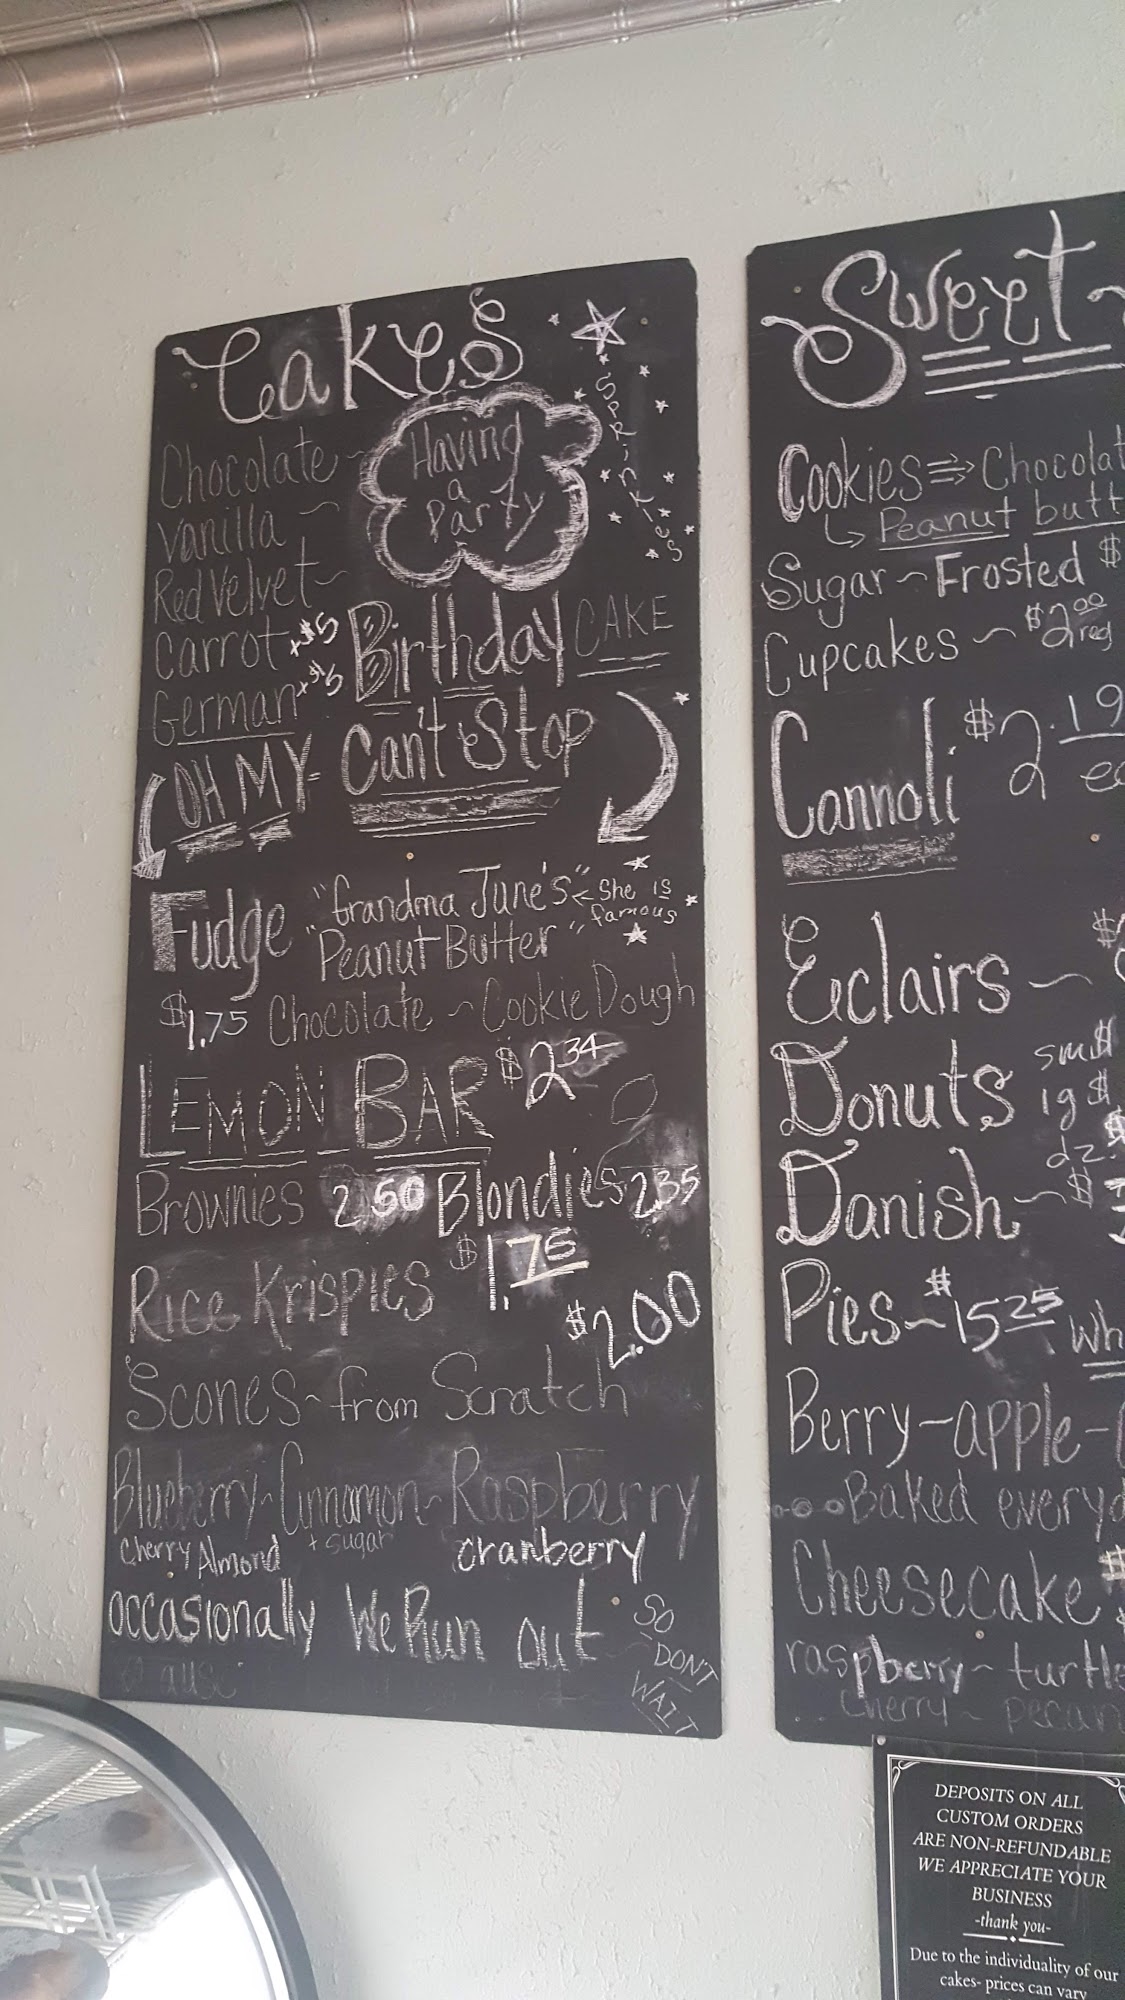 Cakes
Sprinkles
Having
a
Party
Chocolate ~
Vanilla ~
Red Velvet ~
Carrot +$5
German +$5
Birthday CAKE
OH MY = Can't Stop
Fudge "Grandma June's" ← She is famous
"Peanut Butter"
$1.75 Chocolate ~ Cookie Dough
LEMON BAR $2.34
Brownies 2.50 Blondies 2.35
Rice Krispies $1.75
$2.00
Scones ~ from Scratch
Blueberry ~ Cinnamon ~ Raspberry
Cherry Almond + sugar cranberry
occasionally We Run out
SO
DON'T
WAIT
Sweet
Cookies ⇒ Chocolat
↳ Peanut butt
Sugar ~ Frosted $
Cupcakes ~ $2.00 reg
Cannoli $2.19
Eclairs ~
Donuts sm $
lg $
dz. $
Danish ~ $
Pies ~ $15.25 wh
Berry - apple -
Baked everyd
Cheesecake $
raspberry ~ turtle
cherry ~ pecan
DEPOSITS ON ALL
CUSTOM ORDERS
ARE NON-REFUNDABLE
WE APPRECIATE YOUR
BUSINESS
-thank you-
Due to the individuality of our
cakes- prices can vary